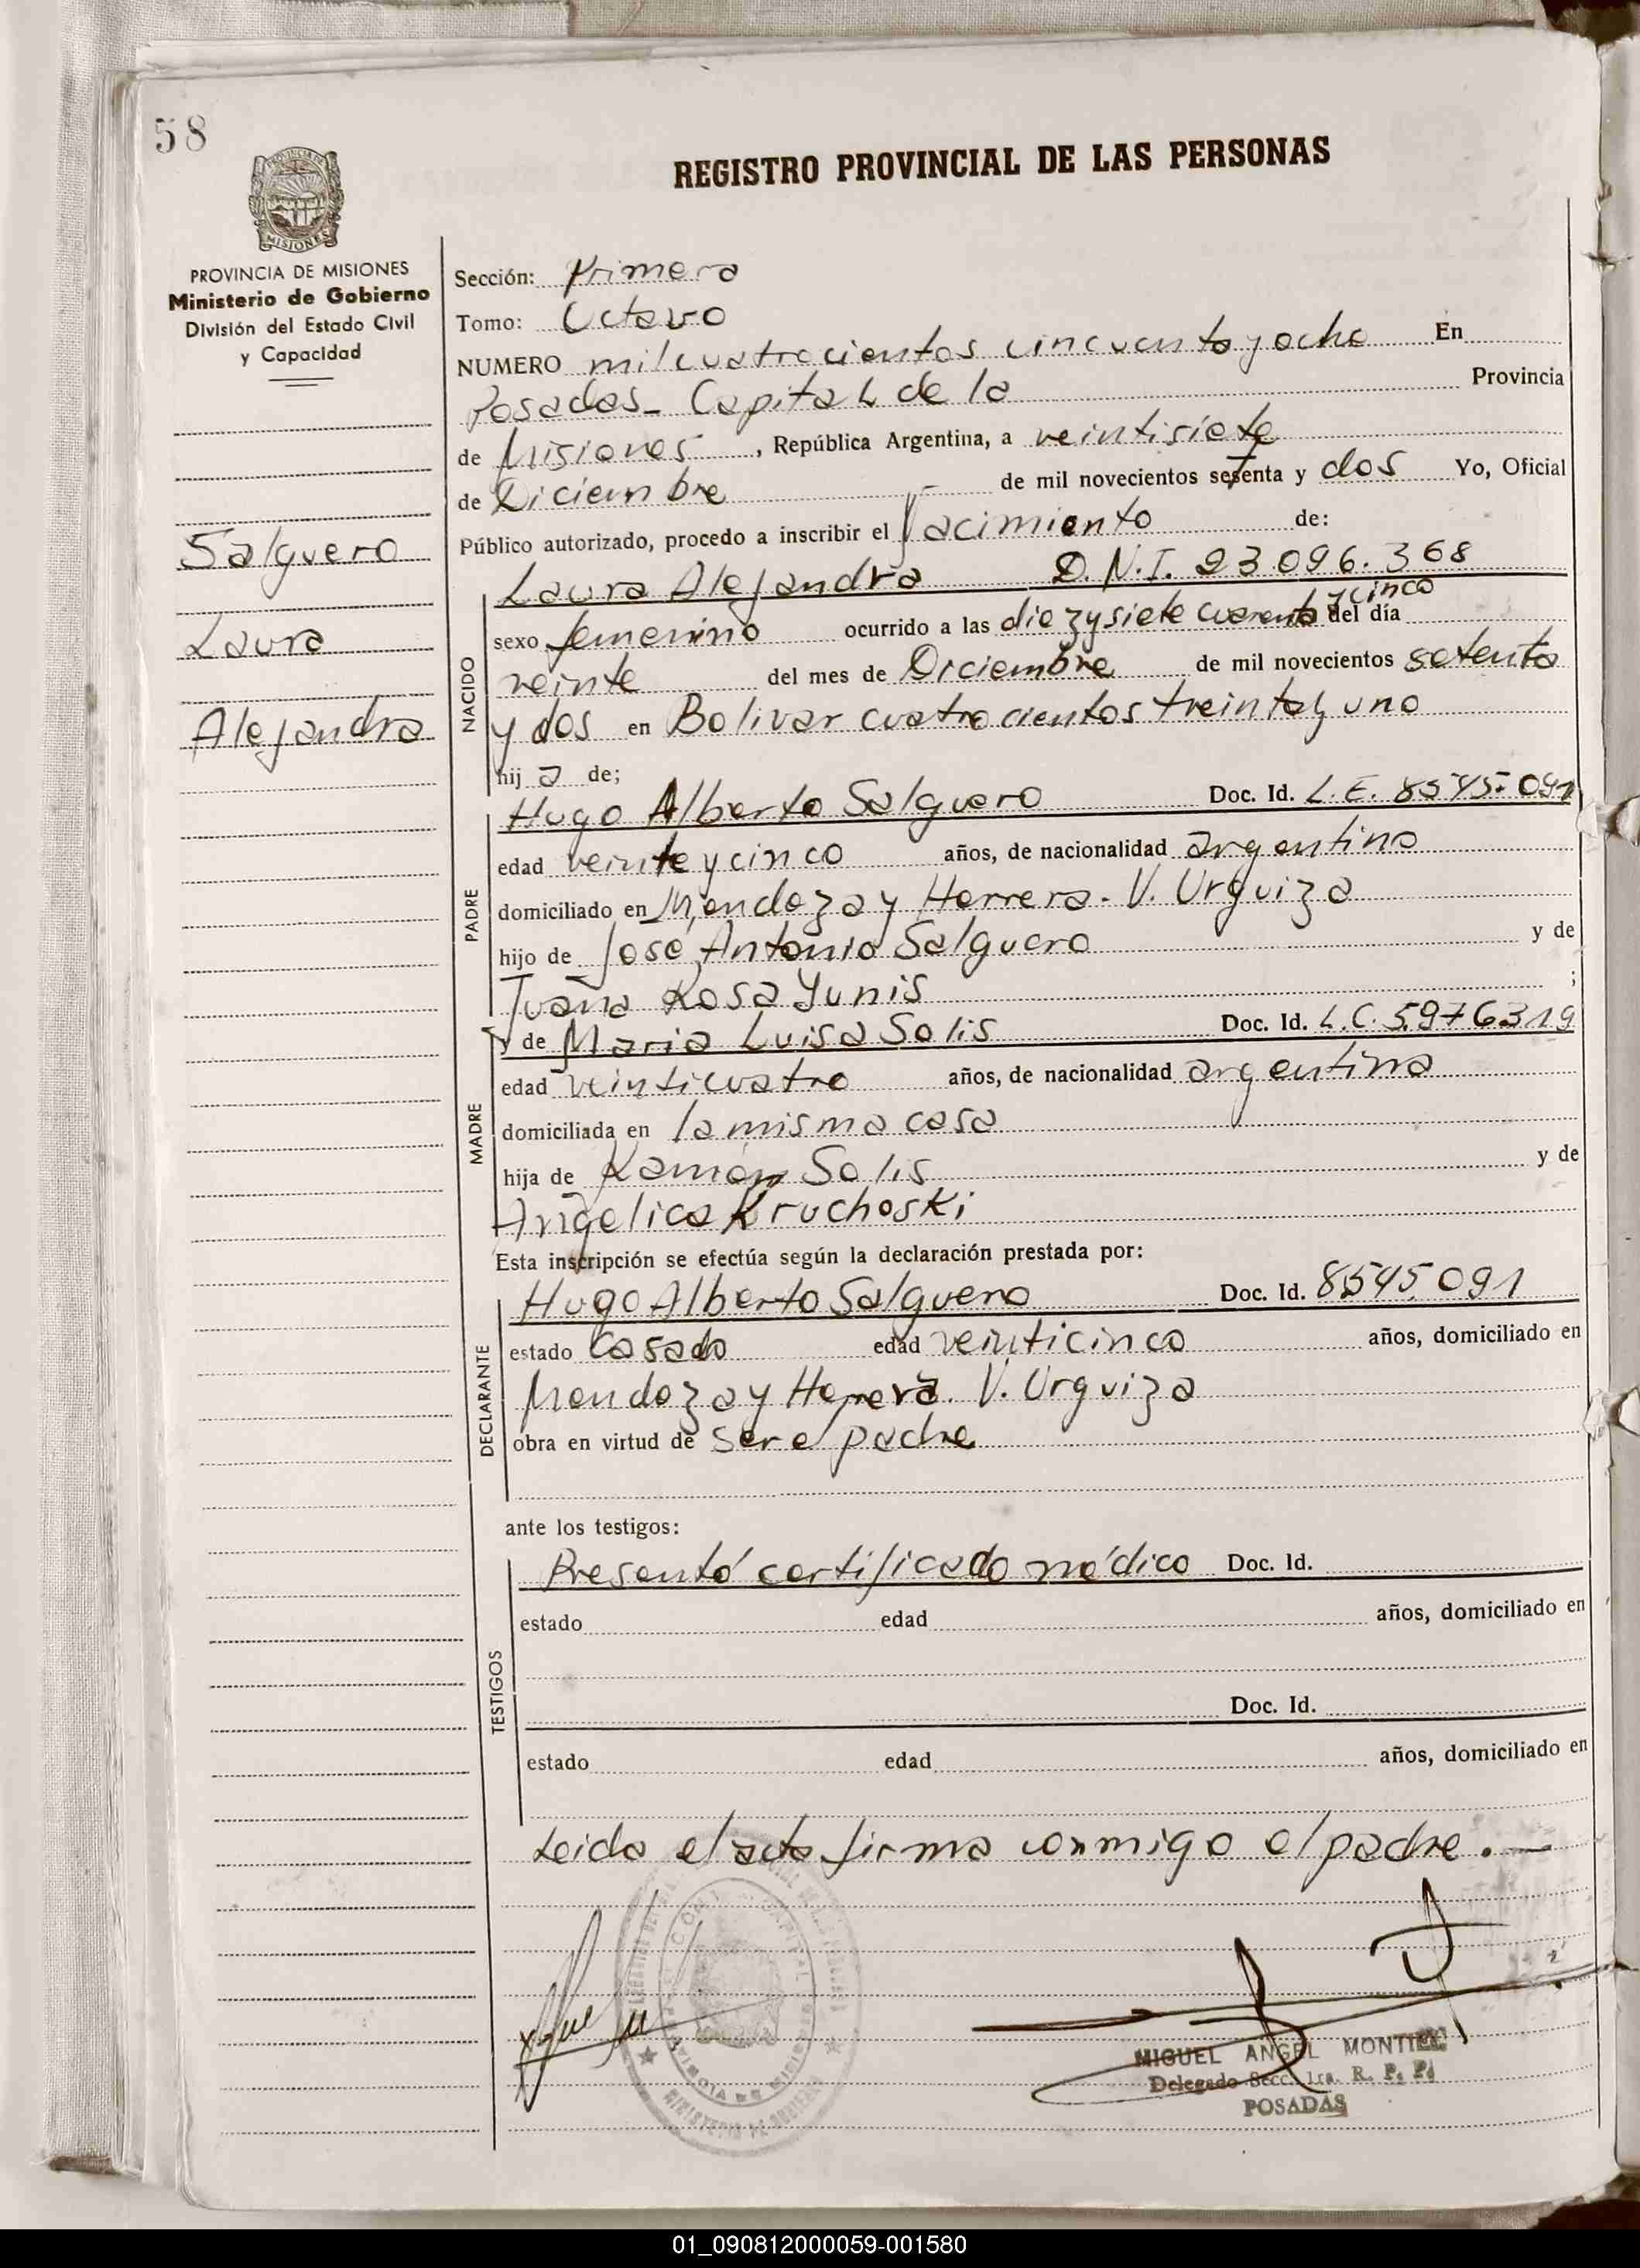 58
REGISTRO PROVINCIAL DE LAS PERSONAS
MISIONES
PROVINCIA DE MISIONES
Ministerio de Gobierno
División del Estado Civil
y Capacidad
Salguero
Laura
Alejandra
Sección: Primera
Tomo: Octavo
NUMERO mil cuatrocientos cincuenta y ocho En
Posadas - Capital de la Provincia
de Misiones, República Argentina, a veintisiete
de Diciembre de mil novecientos setenta y dos Yo, Oficial
Público autorizado, procedo a inscribir el Nacimiento de:
NACIDO
Laura Alejandra D.N.I. 23.096.368
sexo femenino ocurrido a las diez y siete cuarenta y cinco del día
veinte del mes de Diciembre de mil novecientos setenta
y dos en Bolivar cuatrocientos treinta y uno
hij a de;
PADRE
Hugo Alberto Salguero Doc. Id. L.E. 8545.091
edad veinte y cinco años, de nacionalidad argentina
domiciliado en Mendoza y Herrera - V. Urquiza
hijo de José Antonio Salguero y de
Juana Rosa Yunis ;
MADRE
y de Maria Luisa Solis Doc. Id. L.C. 5.976319
edad veinticuatro años, de nacionalidad argentina
domiciliada en la misma casa
hija de Ramón Solis y de
Angelica Kruchoski
Esta inscripción se efectúa según la declaración prestada por:
DECLARANTE
Hugo Alberto Salguero Doc. Id. 8545091
estado Casado edad veinticinco años, domiciliado en
Mendoza y Herrera. V. Urquiza
obra en virtud de ser el padre
ante los testigos:
TESTIGOS
Presentó certificado médico Doc. Id.
estado edad años, domiciliado en
Doc. Id.
estado edad años, domiciliado en
Leida el acta firma conmigo el padre.—
MIGUEL ANGEL MONTIEL
Delegado Secc. 1ra. R. P. P.
POSADAS
MINISTERIO DE GOBIERNO
01_090812000059-001580